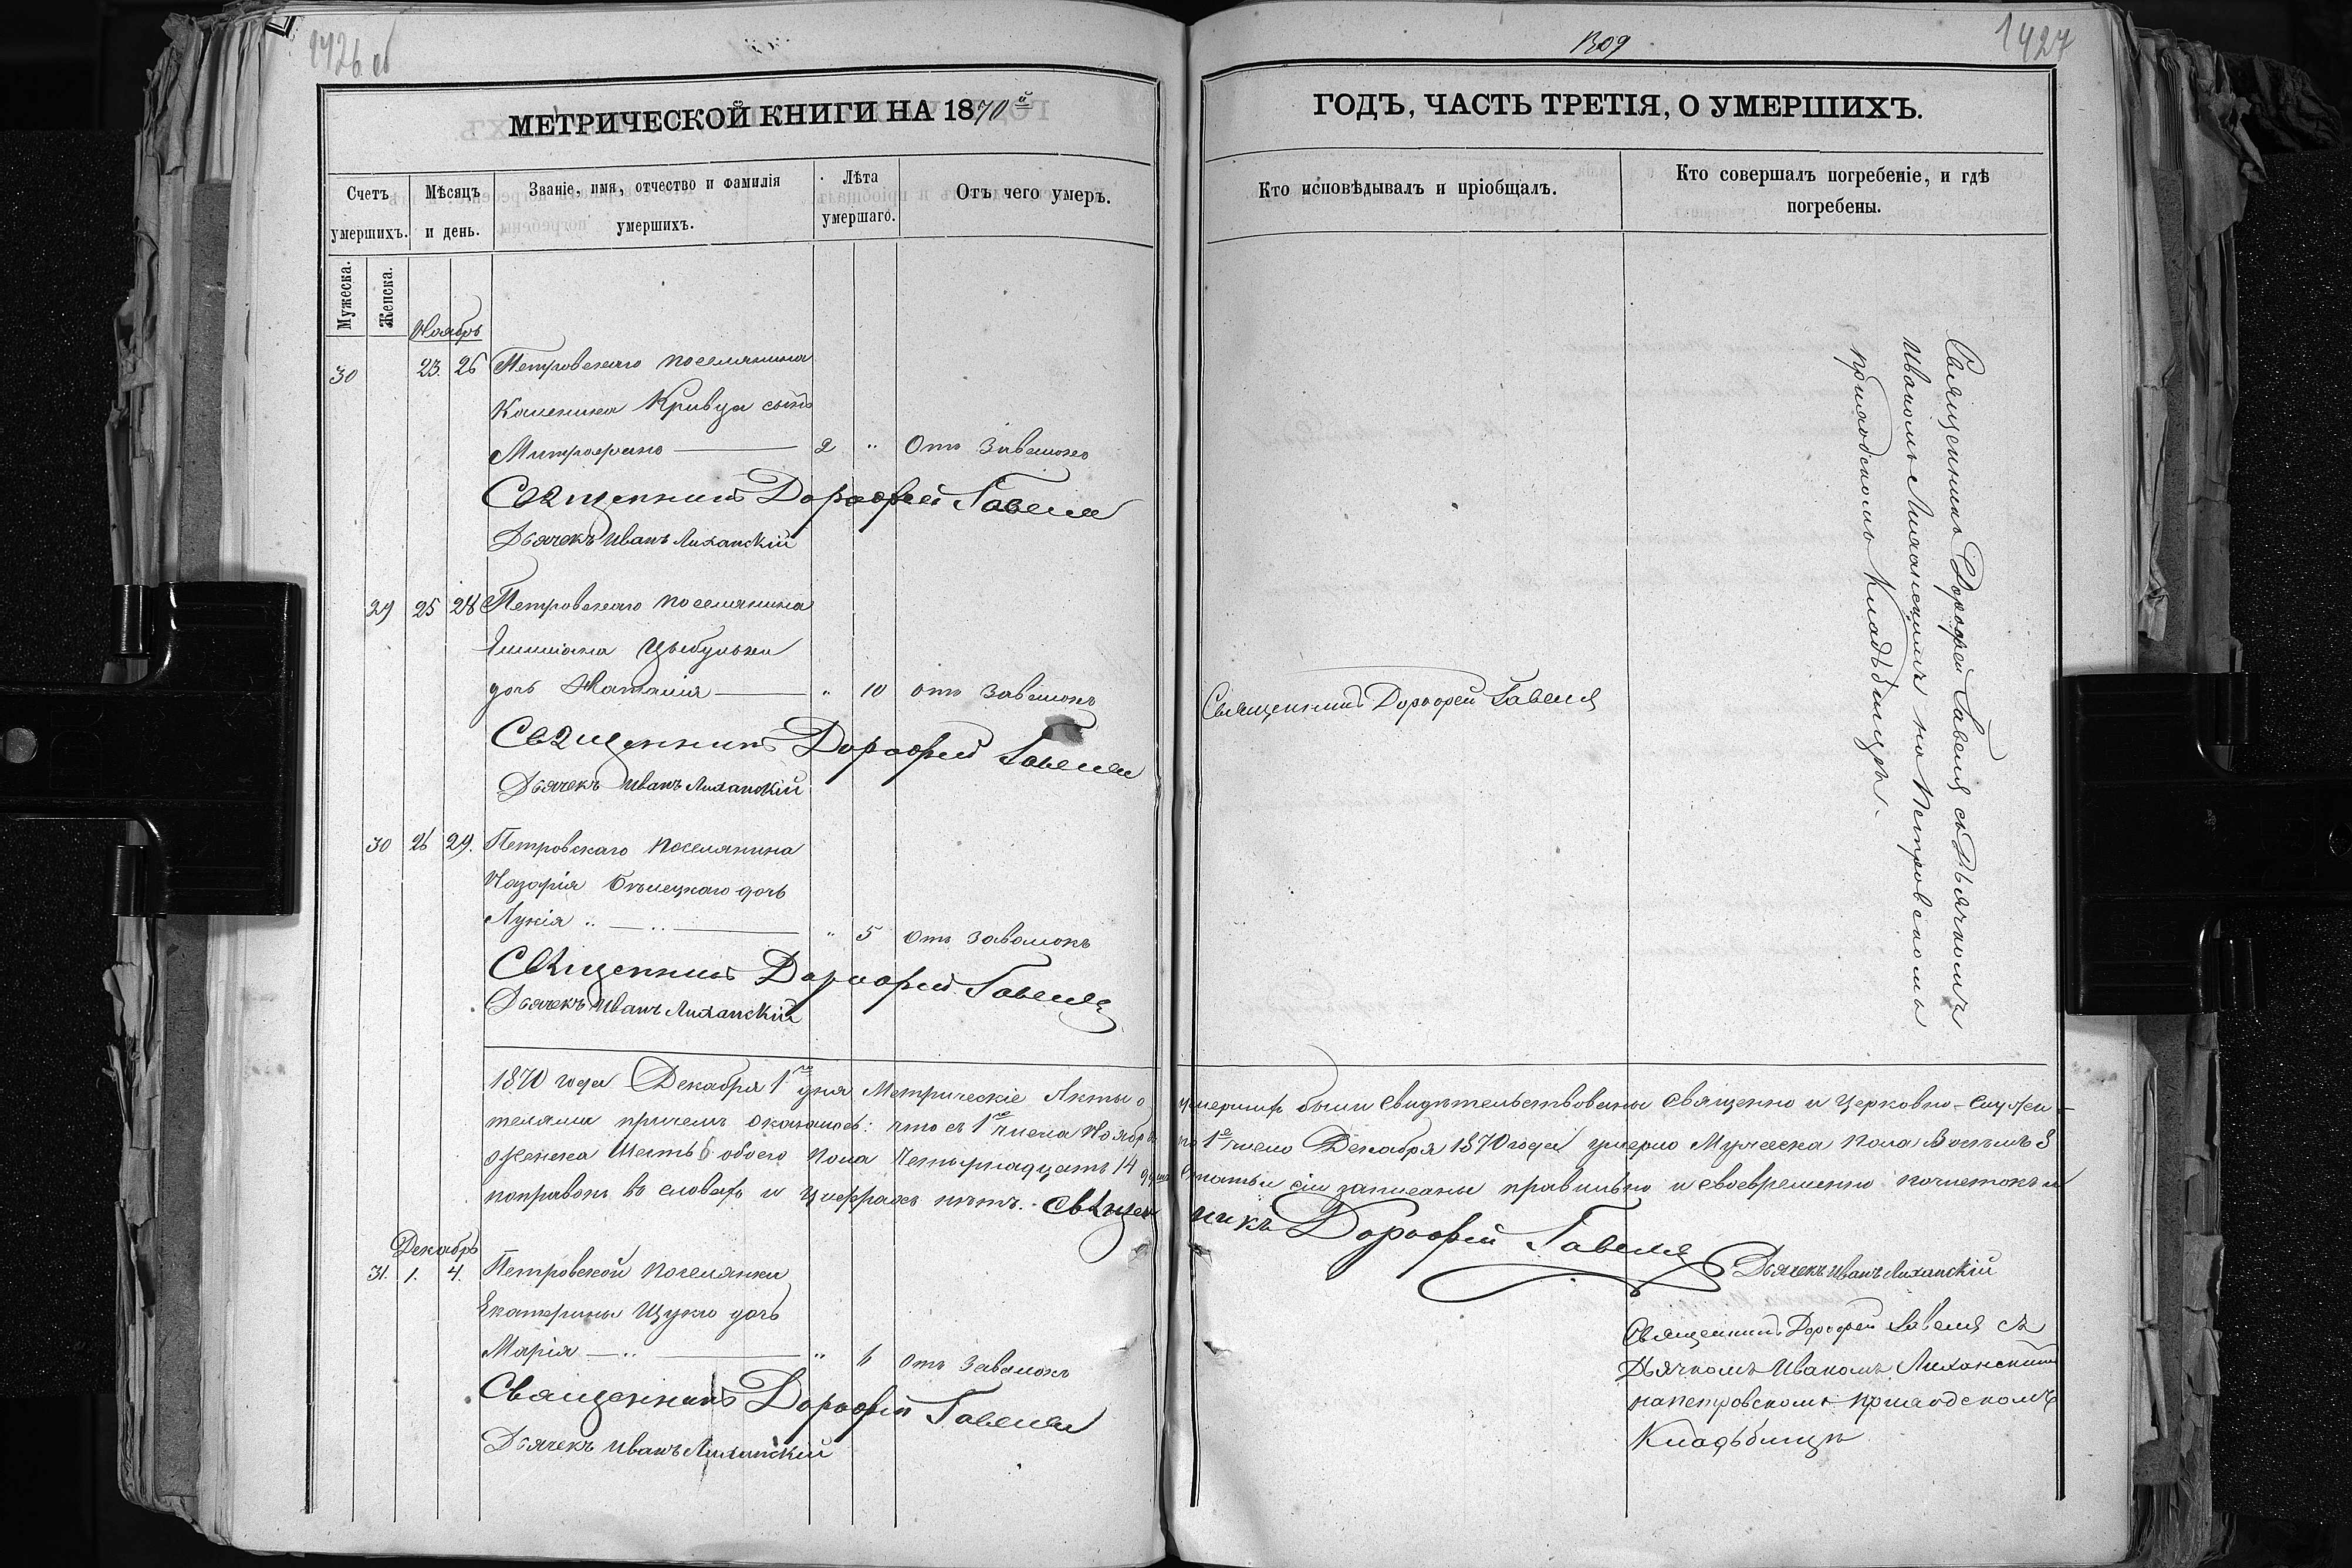 1426 об
1309
1427
МЕТРИЧЕСКОЙ КНИГИ НА 1870й
ГОДЪ, ЧАСТЬ ТРЕТІЯ, О УМЕРШИХЪ.
Счетъ умершихъ.
Мужеска.
Женска.
Мѣсяцъ и день.
Званіе, имя, отчество и фамилія умершихъ.
Лѣта умершаго.
Отъ чего умеръ.
Кто исповѣдывалъ и пріобщалъ.
Кто совершалъ погребеніе, и гдѣ погребены.
Ноябрь
30 23. 26 Петровскаго поселянина
Кривца сынъ
Митрофанъ 2 " Отъ Завалокъ
Священникъ Дорофей Гавеля
Дьячекъ Иванъ Лиханскій
29 25 28 Петровскаго поселянина
Цыбульки
дочь Наталія " 10 отъ завалокъ
Священникъ Дорофей Гавеля
Дьячекъ Иванъ Лиханскій
30 26 29. Петровскаго поселянина
Назарія Бѣлецкаго дочь
Лукія " 5 отъ завалокъ
Священникъ Дорофей Гавеля
Дьячекъ Иванъ Лиханскій
Священникъ Дорофей Гавеля
Священникъ Дорофей Гавеля съ Дьячкомъ
Иваномъ Лиханскимъ на Петровскомъ
приходскомъ Кладбищѣ.
1870 года Декабря 1го дня Метрическіе Акты о умершихъ были свидѣтельствованы священно и церковно-служи-
телями причемъ оказалось: что съ 1го числа Ноября по 1е число Декабря 1870 года умерло Мужеска пола Восемь 8
Женска Шесть 6 обоего пола Четырнадцать 14 душъ Статьи сіи записаны правильно и своевременно почистокъ и
поправокъ въ словахъ и цифрахъ нѣтъ. Священникъ Дорофей Гавеля
Дьячекъ Иванъ Лиханскій
Декабрь
31. 1. 4. Петровской поселянки
Екатерины Щукло дочь
Марія " 6 отъ Завалокъ
Священникъ Дорофей Гавеля
Дьячекъ Иванъ Лиханскій
Священникъ Дорофей Гавеля съ
Дьячкомъ Иваномъ Лиханскимъ
на петровскомъ приходскомъ
Кладьбищѣ